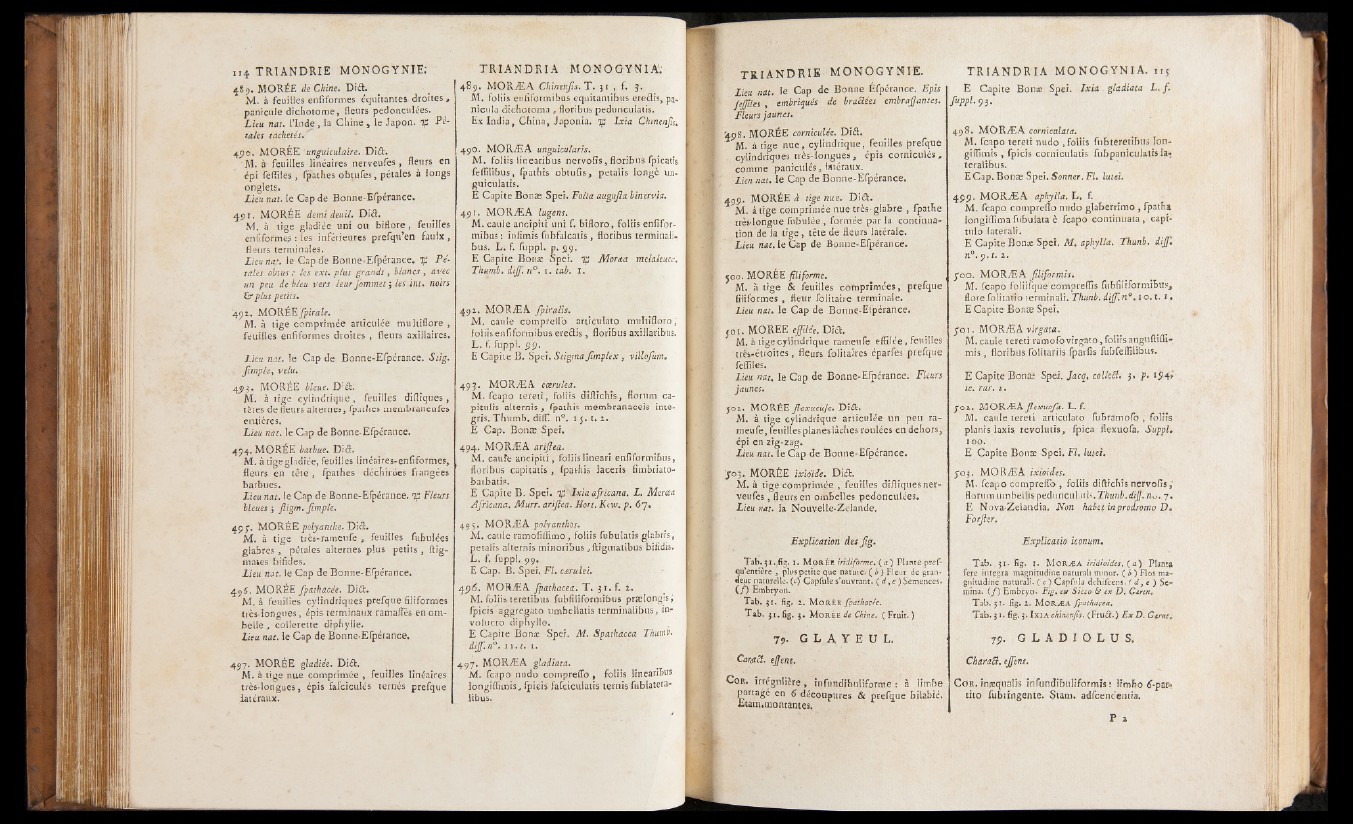 114 TRIANDRIE MONOGYNIE.
489. MORÉE de Chine. Dict.
M. à feuilles enſiformes équitantes droites,
panicule dichotome, fleurs pedonculées.
Lieu nat. l'Inde, la Chine, le Japon. ♃ Pé-
tales tachetés.
490. MORÉE unguiculaire. Dict.
M. à feuilles linéaires nerveuſes, fleurs en
épi ſeſſiles, ſpathes obtuſes, pétales à longs
onglets.
Lieu nat. le Cap de Bonne-Eſpérance.
491. MORÉE demi deuil. Dict.
M. à tige gladiée uni ou biflore, feuilles
enſiformes : les inférieures preſqu'en faulx,
fleurs terminales.
Lieu nat. le Cap de Bonne-Eſpérance. ♃ Pé-
tales obtus : les ext. plus grands, blancs, avec
un peu de bleu vers leur ſommet ; les int. noirs
& plus petits.
492. MORÉE ſpirale.
M. à tige comprimée articulée multiflore,
feuilles enſiformes droites, fleurs axillaires.
Lieu nat. le Cap de Bonne-Eſpérance. Stig.
ſimple, velu.
493. MORÉE bleue. Dict.
M. à tige cylindrique, feuilles diſtiques,
têtes de fleurs alternes, ſpathes membraneuſes
entières.
Lieu nat. le Cap de Bonne-Eſpérance.
494. MORÉE barbue. Dict.
M. à tige gladiée, feuilles linéaires-enſiformes,
fleurs en tête, ſpathes déchirées frangées
barbues.
Lieu nat. le Cap de Bonne-Eſpérance. ♃ Fleurs
bleues ; ſtigm. ſimple.
495. MORÉE polyanthe. Dict.
M. à tige très-rameuſe, feuilles ſubulées
glabres, pétales alternes plus petits, ſtig-
mates bifides.
Lieu nat. le Cap de Bonne-Eſpérance.
496. MORÉE ſpathacée. Dict.
M. à feuilles cylindriques preſque filiformes
très longues, épis terminaux ramaſſés en om-
belle, collerette diphylle.
Lieu nat. le Cap de Bonne-Eſpérance.
497. MORÉE gladiée. Dict.
M. à tige nue comprimée, feuilles linéaires
très-longues, épis faſciculés ternés preſque
latéraux.
TRIANDRIA MONOGYNIA.
489. MORÆA Chinenſis. T. 31, f. 3.
M. foliis enſiformibus equitantibus erectis, pa-
nicula dichotoma, floribus pedunculatis.
Ex India, China, Japonia. ♃ Ixia Chinenſis.
490. MORÆA unguicularis.
M. foliis linearibus nervoſis, floribus ſpicatis
ſeſſilibus, ſpathis obtuſis, petalis longè un-
guiculatis.
E Capite Bonæ Spei. Folia auguſta binervia.
491. MORÆA lugens.
M. caule ancipiti uni ſ. bifloro, foliis enſifor-
mibus : infimis ſubfalcatis, floribus terminali-
bus. L. f. ſuppl. p. 99.
E Capite Bonæ Spei. ♃ Moræa melaleuca.
Thumb. diſſ. n°. 1. tab. 1.
492. MORÆA ſpiralis.
M. caule compreſſo articulato multifloro,
foliis enſiformibus erectis, floribus axillaribus.
L. f. ſuppl. 99.
E Capite B. Spei. Stigma ſimplex, villoſum.
493. MORÆA cœrulea.
M. ſcapo tereti, foliis diſtichis, florum ca-
pitulis alternis, ſpathis membranaceis inte-
gris. Thumb. diſſ. n°. 15. t. 2.
E Cap. Bonæ Spei.
494. MORÆA ariſtea.
M. caule ancipiti, foliis lineari enſiformibus,
floribus capitatis, ſpathis laceris fimbriato-
barbatis.
E Capite B. Spei. ♃ Ixia africana. L. Moræa
Africana. Murr. ariſtea. Hort. Kew. p. 67.
495. MORÆA polyanthos.
M. caule ramoſiſſimo, foliis ſubulatis glabris,
petalis alternis minoribus, ſtigmatibus bifidis.
L. f. ſuppl. 99.
E Cap. B. Spei. Fl. cærulei.
496. MORÆA ſpathacea. T. 31. f. 2.
M. foliis teretibus ſubfiliformibus prælongis,
ſpicis aggregato umbellatis terminalibus, in-
volucro diphyllo.
E Capite Bonæ Spei. M. Spathacea Thumb.
diſſ. n°. 11. t. 1.
497. MORÆA gladiata.
M. ſcapo nudo compreſſo, foliis linearibus
longiſſimis, ſpicis faſciculatis ternis ſublatera-
libus.
TRIANDRIE MONOGYNIE.
Lieu nat. le Cap de Bonne Eſpérance. Epis
ſeſſiles, embriqués de bractées embraſſantes.
Fleurs jaunes.
498. MORÉE corniculée. Dict.
M. à tige nue, cylindrique, feuilles preſque
cylindriques très-longues, épis corniculés,
comme paniculés, latéraux.
Lieu nat. le Cap de Bonne-Eſpérance.
499. MORÉE à tige nue. Dict.
M. à tige comprimée nue très-glabre, ſpathe
très-longue ſubulée, formée par la continua-
tion de la tige, tête de fleurs latérale.
Lieu nat. le Cap de Bonne-Eſpérance.
500. MORÉE filiforme.
M. à tige & feuilles comprimées, preſque
filiformes, fleur ſolitaire terminale.
Lieu nat. le Cap de Bonne-Eſpérance.
501. MOREE effilée. Dict.
M. à tige cylindrique rameuſe effilée, feuilles
très-étroites, fleurs ſolitaires éparſes preſque
ſeſſiles.
Lieu nat. le Cap de Bonne-Eſpérance. Fleurs
jaunes.
502. MORÉE flexueuſe. Dict.
M. à tige cylindrique articulée un peu ra-
meuſe, feuilles planes lâches roulées en dehors,
épi en zig-zag.
Lieu nat. le Cap de Bonne-Eſpérance.
503. MORÉE ixioïde. Dict.
M. à tige comprimée, feuilles diſtiques ner-
veuſes, fleurs en ombelles pedonculées.
Lieu nat. la Nouvelle-Zelande.
Explication des fig.
Tab. 31. fig. 1. MORÉE iridiforme. (a) Plante preſ-
qu'entière, plus petite que nature. (b) Fleur de gran-
deur naturelle. (c) Capſule s'ouvrant. (d, e) Semences.
(f) Embryon.
Tab. 31. fig. 2. MORÉE ſpathacée.
Tab. 31. fig. 3. MORÉE de Chine. (Fruit.)
79. GLAYEUL.
Caract. eſſent.
COR. irrégulière, infundibuliforme : à limbe
partagé en 6 découpures & preſque bilabié.
Etam. montantes.
TRIANDRIA MONOGYNIA. 115
E Capite Bonæ Spei. Ixia gladiata L. f.
ſuppl. 93.
498. MORÆA corniculata.
M. ſcapo tereti nudo, foliis ſubteretibus lon-
giſſimis, ſpicis corniculatis ſubpaniculatis la-
teralibus.
E Cap. Bonæ Spei. Sonner. Fl. lutei.
499. MORÆA aphylla. L. f.
M. ſcapo compreſſo nudo glaberrimo, ſpatha
longiſſima ſubulata è ſcapo continuata, capi-
tulo laterali.
E Capite Bonæ Spei. M. aphylla. Thunb. diſſ.
n°. 9. t. 2.
500. MORÆA filiformis.
M. ſcapo foliiſque compreſſis ſubfiliformibus,
flore ſolitario terminali. Thunb. diſſ. n°. 10. t. 1.
E Capite Bonæ Spei.
501. MORÆA virgata.
M. caule tereti ramoſo virgato, foliis anguſtiſſi-
mis, floribus ſolitariis ſparſis ſubſeſſilibus.
E Capite Bonæ Spei. Jacq. collect. 3. p. 194.
ic. rar. 1.
502. MORÆA flexuoſa. L. f.
M. caule tereti articulato ſubramoſo, foliis
planis laxis revolutis, ſpica flexuoſa. Suppl.
100.
E Capite Bonæ Spei. Fl. lutei.
503. MORÆA ixioides.
M. ſcapo compreſſo, foliis diſtichis nervoſis,
florum umbellis pedunculatis. Thunb. diſſ. no. 7.
E Nova-Zelandia. Non habet in prodromo D.
Forſter.
Explicatio iconum.
Tab. 31. fig. 1. MORÆA iridioides. (a) Planta
fere integra magnitudine naturali minor. (b) Flos ma-
gnitudine naturali. (c) Capſula dehiſcens. (d, e) Se-
mina. (f) Embryo. Fig. ex Sicco & ex D. Gærtn.
Tab. 31. fig. 2. MORÆA ſpathacea.
Tab. 31. fig. 3. IXIA chinenſis. (Fruct.) Ex D. Gærtn.
79. GLADIOLUS.
Charact. eſſent.
COR. inæqualis infundibuliformis : limbo 6-par-
tito ſubringente. Stam. adſcendentia.
P 2